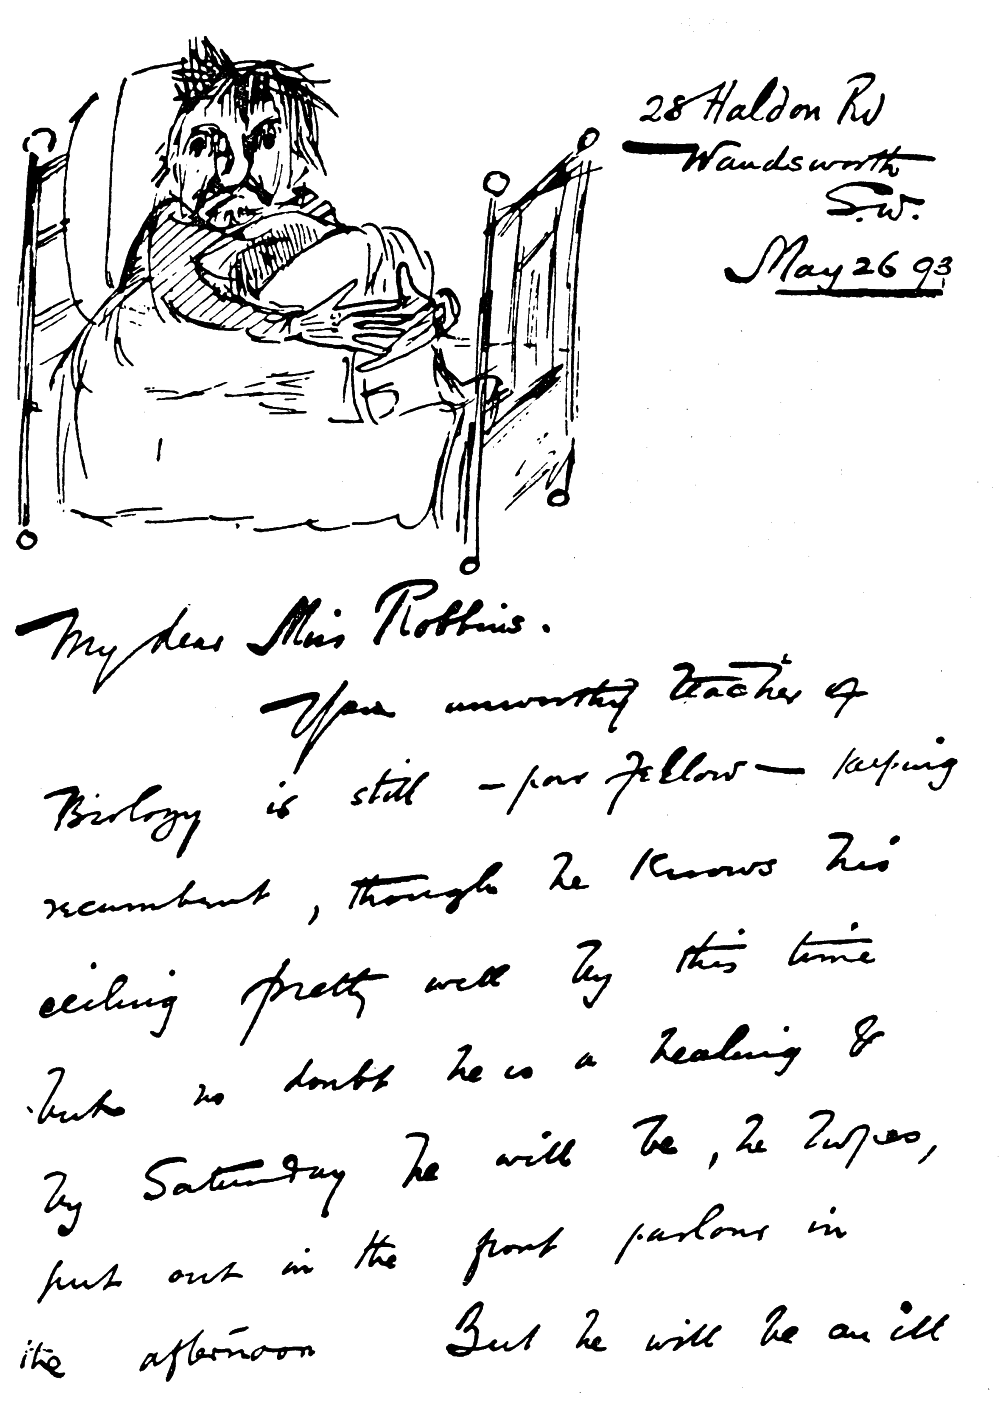 28 Haldon Rd
Wandsworth
S.W.
May 26 93
My dear Miss Robbins.
Your unworthy teacher of
Biology is still — poor fellow — keeping
recumbent, though he knows his
ceiling pretty well by this time
but no doubt he is a healing &
by Saturday he will be, he hopes,
put out in the front parlour in
the afternoon But he will be an ill